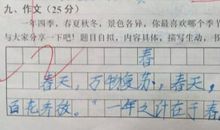 九、作文(25分)
一年四季,春夏秋冬,景色各异,你最喜欢哪个季节
与大家分享一下吧!题目自拟,内容具体,描写生动,书
春
春天,万物复苏,春天,
百花齐放。"一年之计在于春